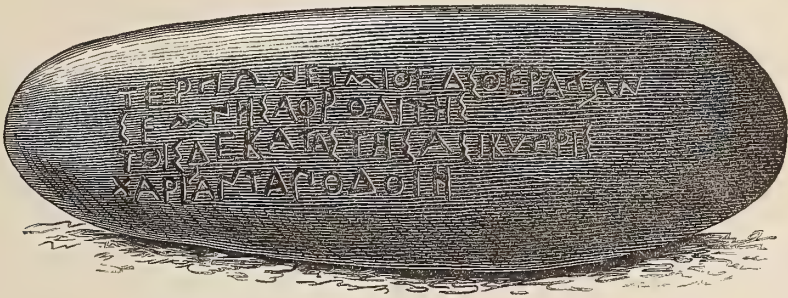 ΤΕΡΠΩΝΕΙΜΙΘΕΑΣΘΕΡΑΠΩΝ
ΣΕΜΝΗΣΑΦΡΟΔΙΤΗΣ
ΤΟΙΣΔΕΚΑΤΑΣΤΗΣΑΣΙΚΥΠΡΙΣ
ΧΑΡΙΝΑΝΤΑΠΟΔΟΙΗ